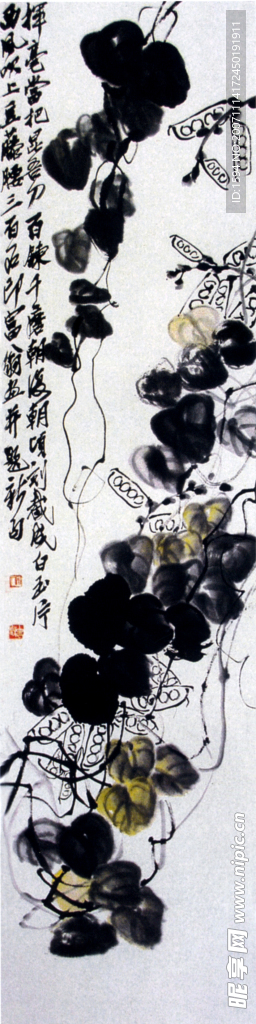 揮毫當把昆吾刀百鍊千磨朝復朝頃刻裁成白玉片
西風吹上豆藤腰三百石印富翁畫并題新句
ID:1594 NO:20071114172450191911
昵享网 www.nipic.cn